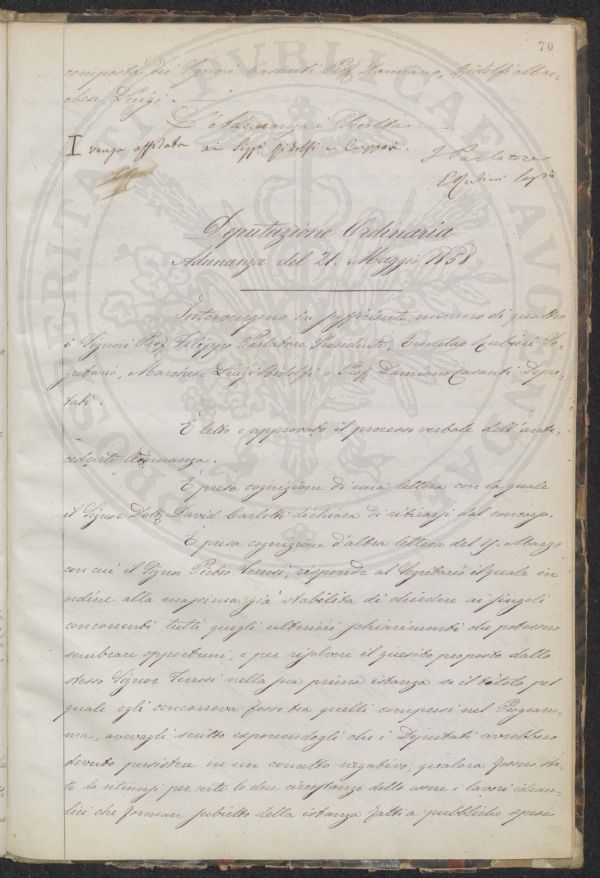 70
composta dei Signori Casanti Prof. Damiano, Ridolfi Mar-
chese Luigi.
L'Adunanza è sciolta
I venga affidata ai Sigg. Ridolfi e
F. Parlatore
E. Rubieri Segr.
Deputazione Ordinaria
Adunanza del 21. Maggio 1858
Intervengono in sufficiente numero di quattro
i Signori Prof. Filippo Parlatore Presidente, Ermolao Rubieri Se-
gretario, Marchese Luigi Ridolfi e Prof. Damiano Casanti Depu-
tati.
È letto e approvato il processo verbale dell'ante-
cedente Adunanza.
È presa cognizione di una lettera con la quale
il Signor Dott. David Carletti dichiara di ritirarsi dal concorso.
È presa cognizione d'altra lettera del Marzo
con cui il Signor Pietro Terrosi, risponde al Segretario il quale in
ordine alla massima già stabilita di chiedere ai singoli
concorrenti tutti quegli ulteriori schiarimenti che potessero
sembrare opportuni, e per risolvere il quesito proposto dallo
stesso Signor Terrosi nella sua prima istanza se il titolo pel
quale egli concorreva fosse tra quelli compresi nel Program-
ma, avevagli scritto esponendogli che i Deputati avrebbero
dovuto persistere in un concetto negativo, qualora fossero sta-
te da ritenersi per certe le due circostanze dello essere i lavori idrau-
lici che formano subietto della istanza fatti a pubbliche spese